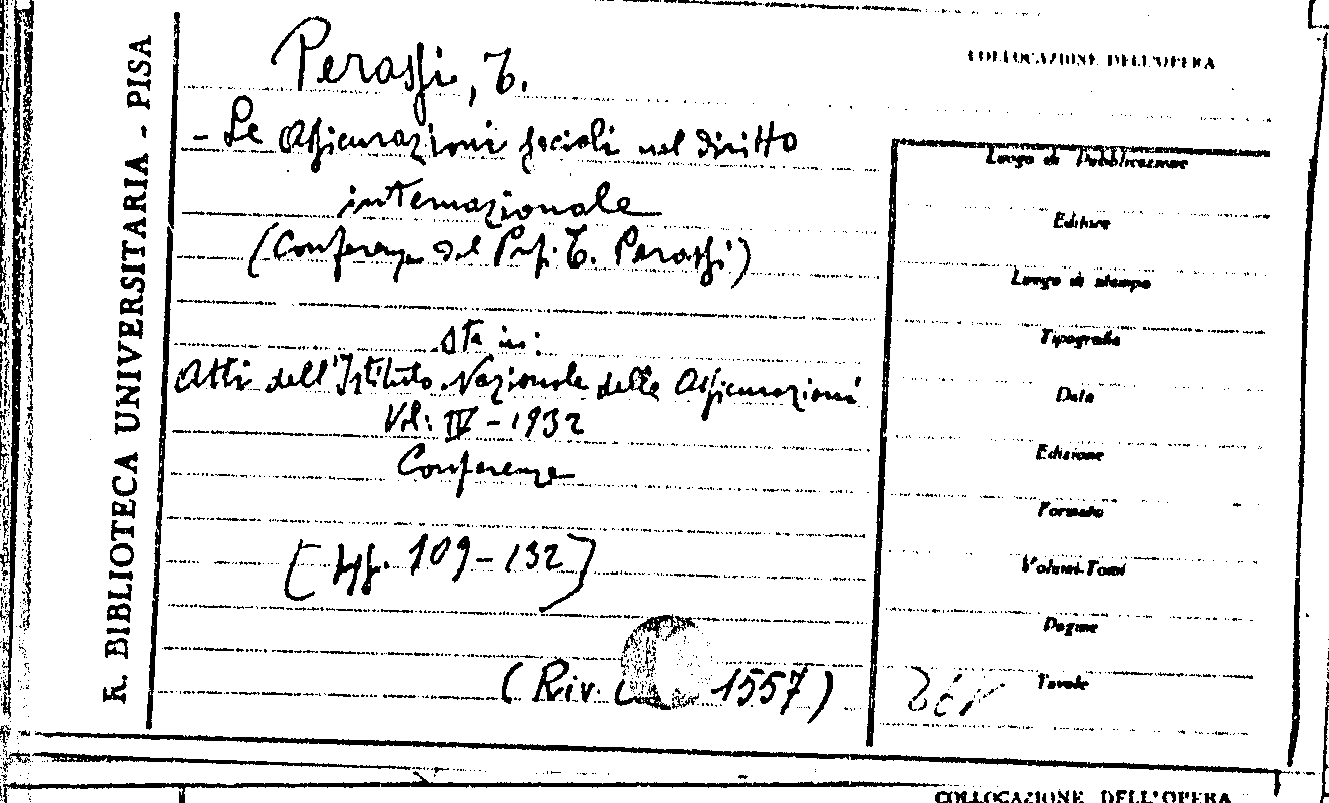 R. BIBLIOTECA UNIVERSITARIA - PISA
Perassi, T.
- Le Assicurazioni sociali nel diritto
internazionale
(Conferenza del Prof. T. Perassi)
sta in:
Atti dell'Istituto Nazionale delle Assicurazioni
Vol: IV - 1932
Conferenze
[pp. 109-132]
(Riv. 1557)
COLLOCAZIONE DELL'OPERA
Luogo di Pubblicazione
Editore
Luogo di stampa
Tipografia
Data
Edizione
Formato
Volumi-Tomi
Pagine
Tavole
COLLOCAZIONE DELL'OPERA